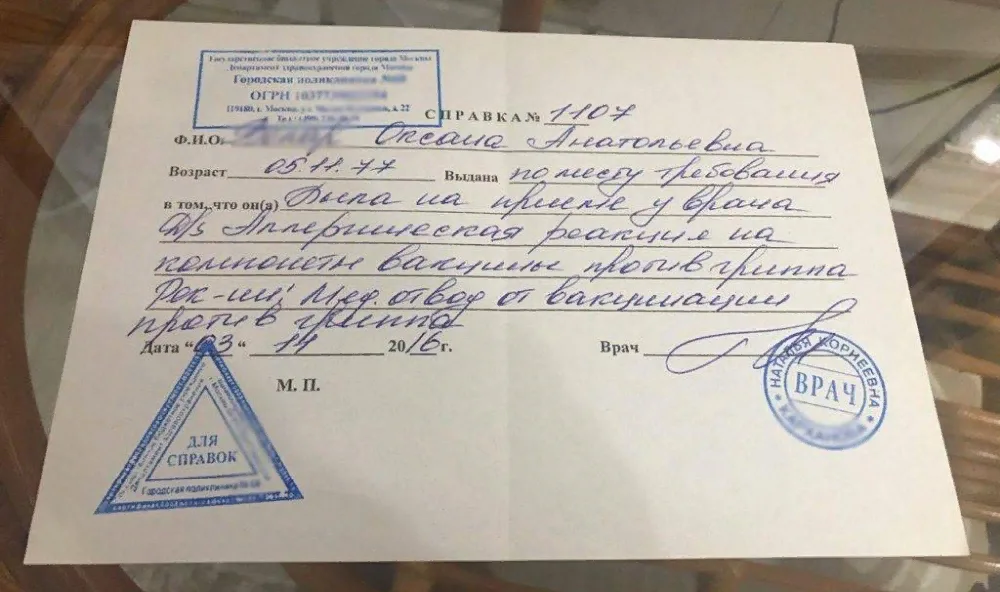 Государственное бюджетное учреждение города Москвы
Департамент здравоохранения города Москвы
Городская поликлиника
ОГРН
119180, г. Москва, д. 22
СПРАВКА № 1107
Ф.И.О. Оксана Анатольевна
Возраст 05.11.77 Выдана по месту требования
в том, что он(а) Была на приеме у врача
D/s Аллергическая реакция на
компоненты вакцины против гриппа
Рек-ции: Мед. отвод от вакцинации
против гриппа
Дата "03" 2016г. Врач
М. П.
ДЛЯ
СПРАВОК
Городская поликлиника
НАТАЛЬЯ КОРНЕЕВНА
ВРАЧ